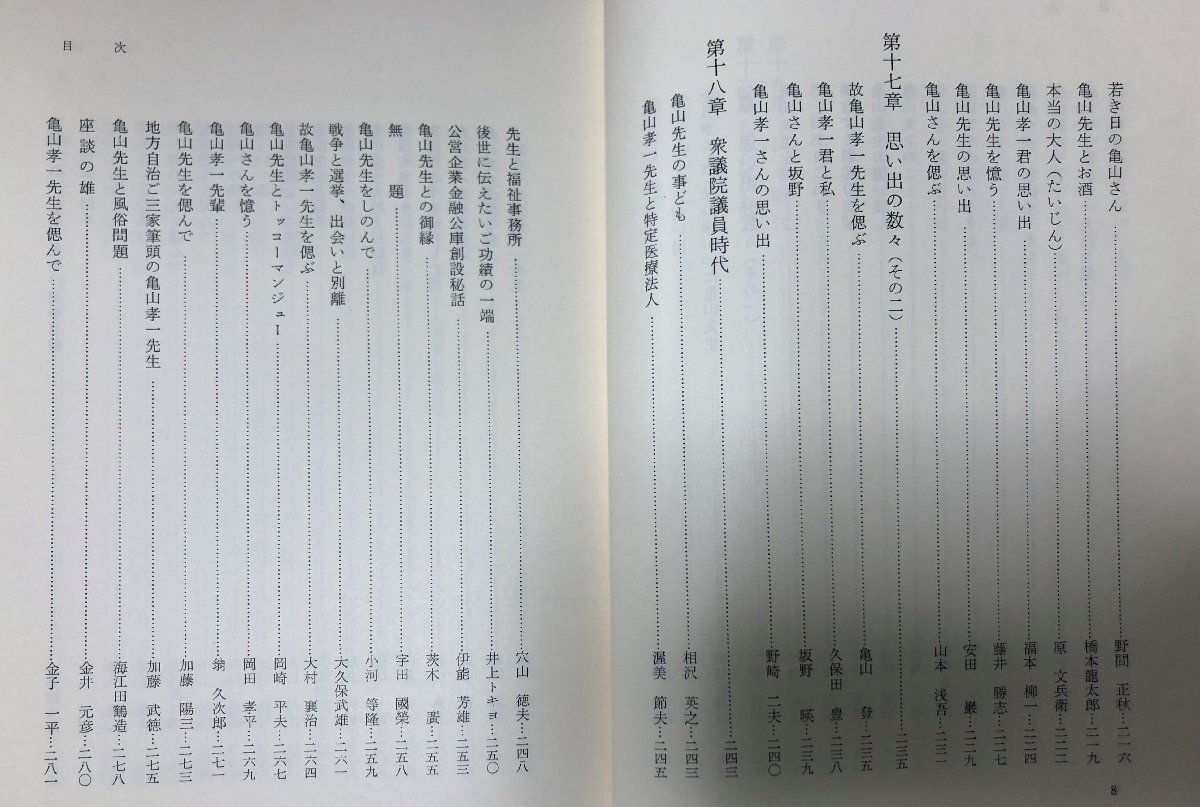 若き日の亀山さん……野間 正秋…二一六
亀山先生とお酒……橋本龍太郎…二一九
本当の大人（たいじん）……原 文兵衛…二二二
亀山孝一君の思い出……福本 柳一…二二四
亀山先生を憶う……藤井 勝志…二二七
亀山先生の思い出……安田 巌…二二九
亀山さんを偲ぶ……山本 浅吾…二三一
第十七章 思い出の数々（その二）……二三五
故亀山孝一先生を偲ぶ……亀山 登…二三五
亀山孝一君と私……久保田 豊…二三八
亀山さんと坂野……坂野 暎…二三九
亀山孝一さんの思い出……野崎 二夫…二四〇
第十八章 衆議院議員時代……二四三
亀山先生の事ども……相沢 英之…二四三
亀山孝一先生と特定医療法人……渥美 節夫…二四五
8
目次
先生と福祉事務所……穴山 徳夫…二四八
後世に伝えたいご功績の一端……井上トキヨ…二五〇
公営企業金融公庫創設秘話……伊能 芳雄…二五三
亀山先生との御縁……茨木 廣…二五五
無題……宇田 國榮…二五八
亀山先生をしのんで……小河 等隆…二五九
戦争と選挙、出会いと別離……大久保武雄…二六一
故亀山孝一先生を偲ぶ……大村 襄治…二六四
亀山先生とトッコーマンジュー……岡崎 平夫…二六七
亀山さんを憶う……岡田 孝平…二六九
亀山孝一先輩……翁 久次郎…二七一
亀山先生を偲んで……加藤 陽三…二七三
地方自治ご三家筆頭の亀山孝一先生……加藤 武徳…二七五
亀山先生と風俗問題……海江田鶴造…二七八
座談の雄……金井 元彦…二八〇
亀山孝一先生を偲んで……金子 一平…二八一